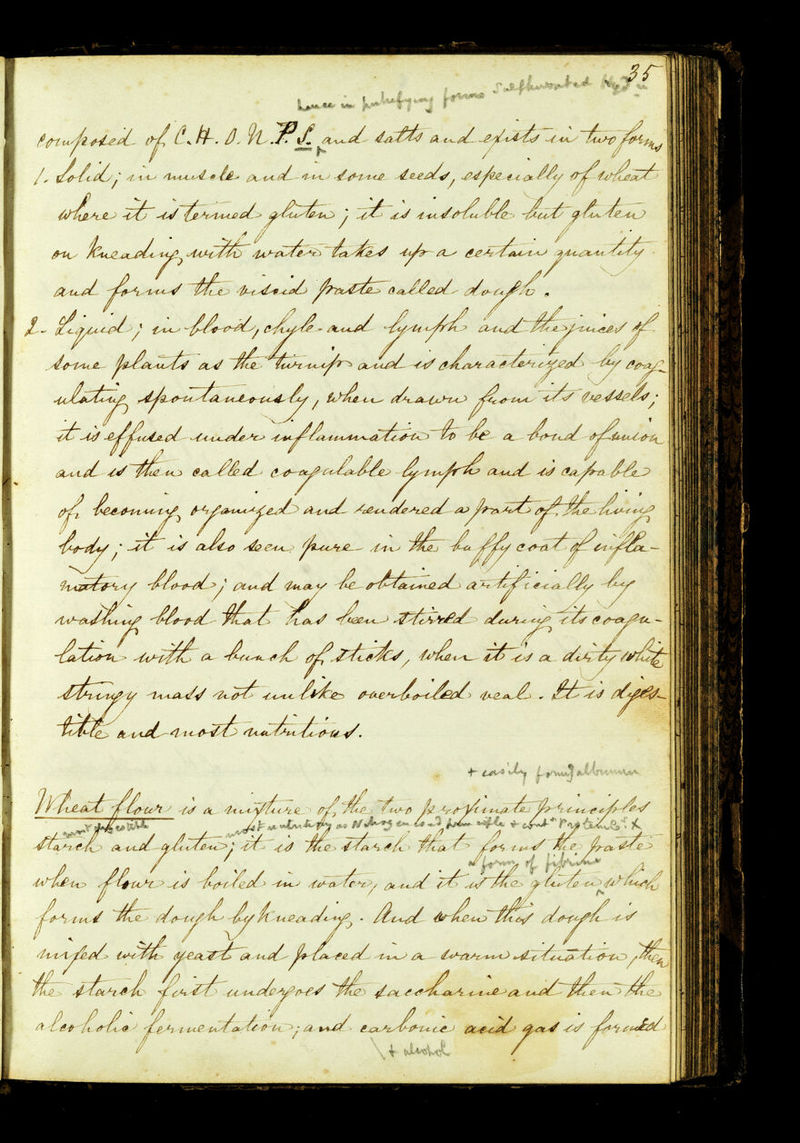 35
hence in putrefying forms Sulphuretted Hyd
composed of C. H. O. N. P. S. and salts and exists in two forms
1. Solid; in muscle and in some seeds, especially of wheat
where it is termed gluten; it is insoluble but gluten
on kneading with water takes up a certain quantity
and forms the viscid paste called dough.
2. Liquid; in blood, chyle and lymph and the juices of
some plants as the turnip and is characterized by coag-
ulating spontaneously, when drawn from its vessels;
it is effused under inflammation to be a bond of union
and is then called coagulable lymph and is capable
of becoming organized and rendered a part of the living
body; it is also seen pure in the buffy coat of infla-
matory blood; and may be obtained artificially by
washing blood that has been stirred during its coagu-
lation with a bunch of sticks, when it is a dirty white
stringy mass not unlike overboiled veal. It is diges-
tible and most nutritious.
+ easily albumen
Wheat flour is a mixture of the two proximate principles
most most as principle +
starch and gluten; it is the starch that forms the paste
a form of fibrine
when flour is boiled in water, and it is the gluten which
forms the dough by kneading. And when this dough is
mixed with yeast and placed in a warm situation, then
the starch first undergoes the saccharine and then the
alcoholic fermentation; and carbonic acid gas is formed
+ alcohol